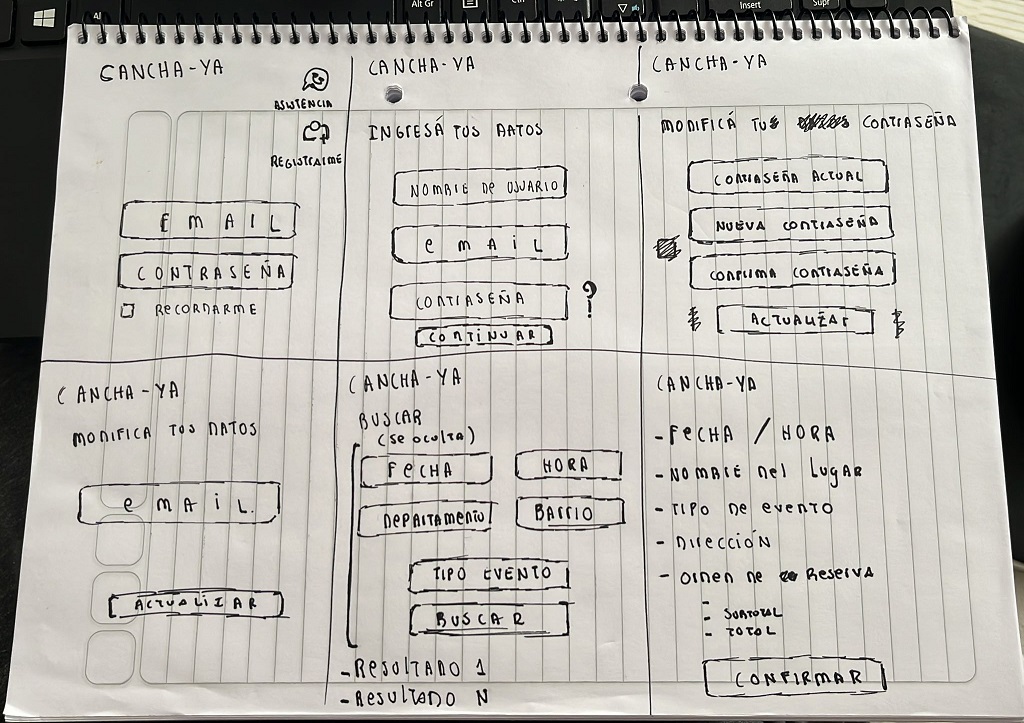 Alt Gr
Insert
Supr
CANCHA-YA
ASISTENCIA
REGISTRARME
EMAIL
CONTRASEÑA
RECORDARME
CANCHA-YA
INGRESÁ TUS DATOS
NOMBRE DE USUARIO
EMAIL
CONTRASEÑA ?
CONTINUAR
CANCHA-YA
MODIFICÁ TU CONTRASEÑA
CONTRASEÑA ACTUAL
NUEVA CONTRASEÑA
CONFIRMA CONTRASEÑA
ACTUALIZAR
CANCHA-YA
MODIFICA TUS DATOS
EMAIL.
ACTUALIZAR
CANCHA-YA
BUSCAR
(SE OCULTA)
FECHA HORA
DEPARTAMENTO BARRIO
TIPO EVENTO
BUSCAR
-RESULTADO 1
-RESULTADO N
CANCHA-YA
-FECHA / HORA
-NOMBRE DEL LUGAR
-TIPO DE EVENTO
- DIRECCIÓN
- ORDEN DE RESERVA
- SUBTOTAL
- TOTAL
CONFIRMAR